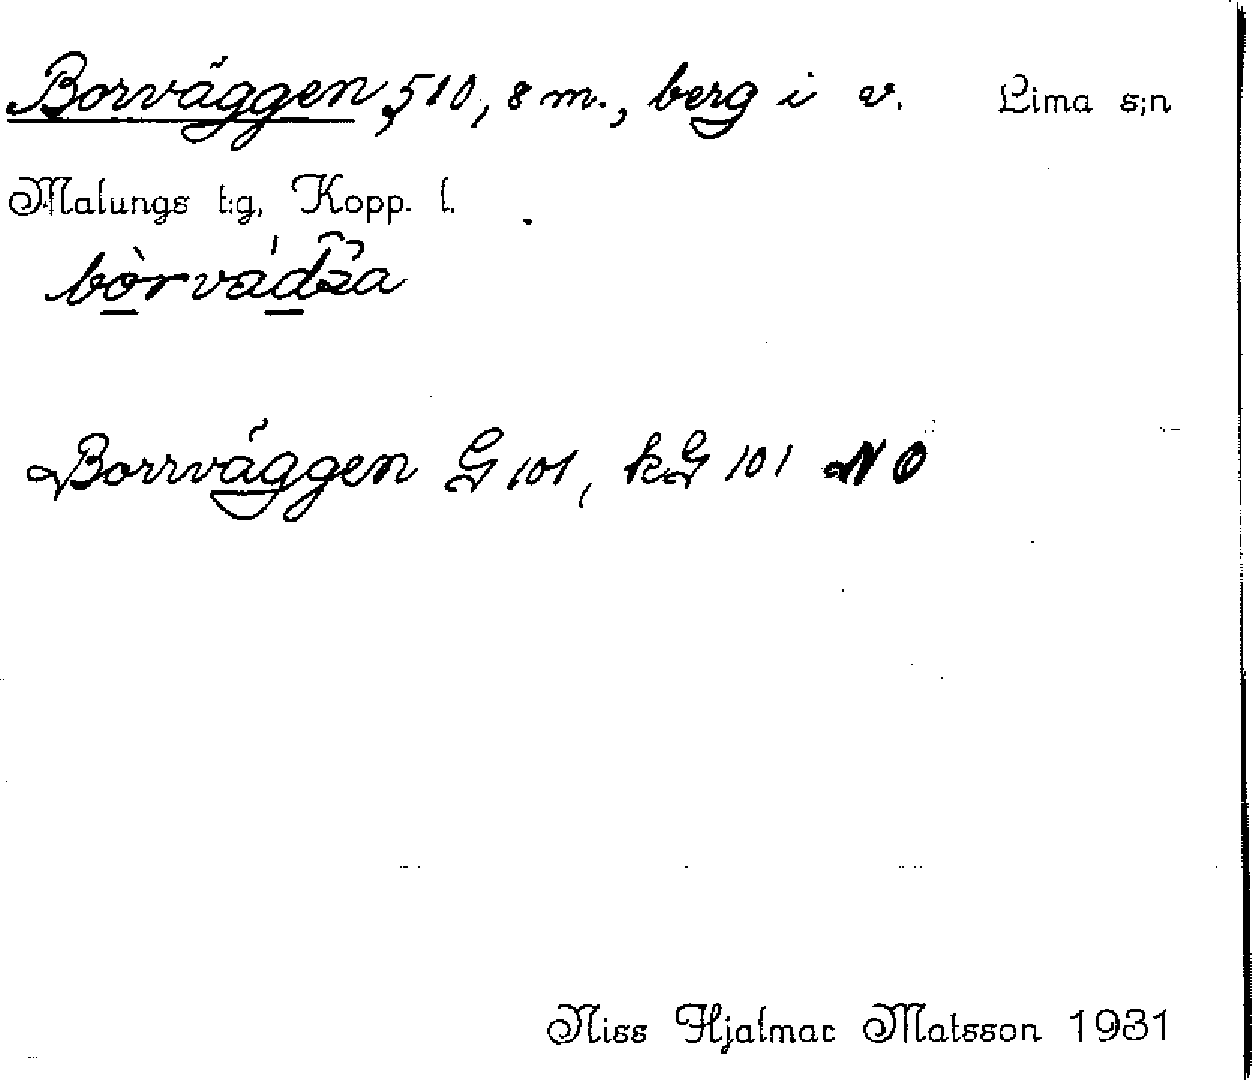 Borväggen, 510,8 m., berg i v. Lima s;n
Malungs t:g, Kopp. l.
Borrväggen G 101, kG 101 NO
Niss Hjalmar Matsson 1931